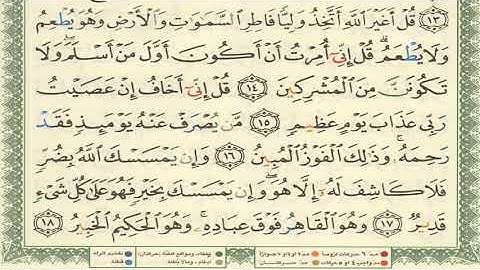 ١٣ قُلْ أَغَيْرَ ٱللَّهِ أَتَّخِذُ وَلِيًّا فَاطِرِ ٱلسَّمَـٰوَٰتِ وَٱلْأَرْضِ وَهُوَ يُطْعِمُ
وَلَا يُطْعَمُ ۗ قُلْ إِنِّىٓ أُمِرْتُ أَنْ أَكُونَ أَوَّلَ مَنْ أَسْلَمَ ۖ وَلَا
تَكُونَنَّ مِنَ ٱلْمُشْرِكِينَ ١٤ قُلْ إِنِّىٓ أَخَافُ إِنْ عَصَيْتُ
رَبِّى عَذَابَ يَوْمٍ عَظِيمٍ ١٥ مَّن يُصْرَفْ عَنْهُ يَوْمَئِذٍ فَقَدْ
رَحِمَهُۥ ۚ وَذَٰلِكَ ٱلْفَوْزُ ٱلْمُبِينُ ١٦ وَإِن يَمْسَسْكَ ٱللَّهُ بِضُرٍّ
فَلَا كَاشِفَ لَهُۥٓ إِلَّا هُوَ ۖ وَإِن يَمْسَسْكَ بِخَيْرٍ فَهُوَ عَلَىٰ كُلِّ شَىْءٍ
قَدِيرٌ ١٧ وَهُوَ ٱلْقَاهِرُ فَوْقَ عِبَادِهِۦ ۚ وَهُوَ ٱلْحَكِيمُ ٱلْخَبِيرُ ١٨